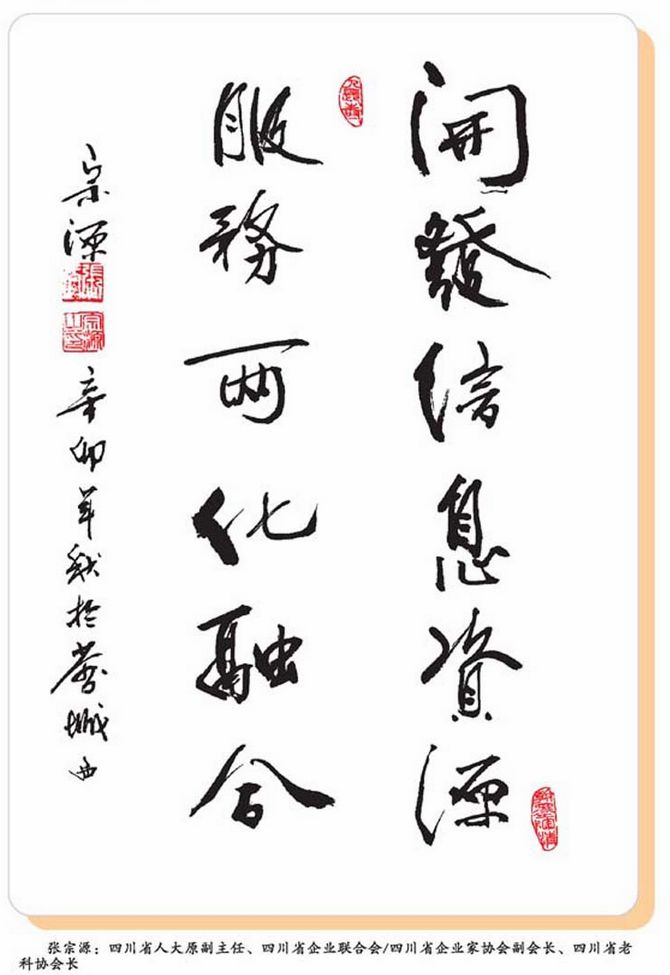 開發信息資源
服務两化融合
宗源
辛卯年秋於蓉城西
张宗源：四川省人大原副主任、四川省企业联合会/四川省企业家协会副会长、四川省老
科协会长